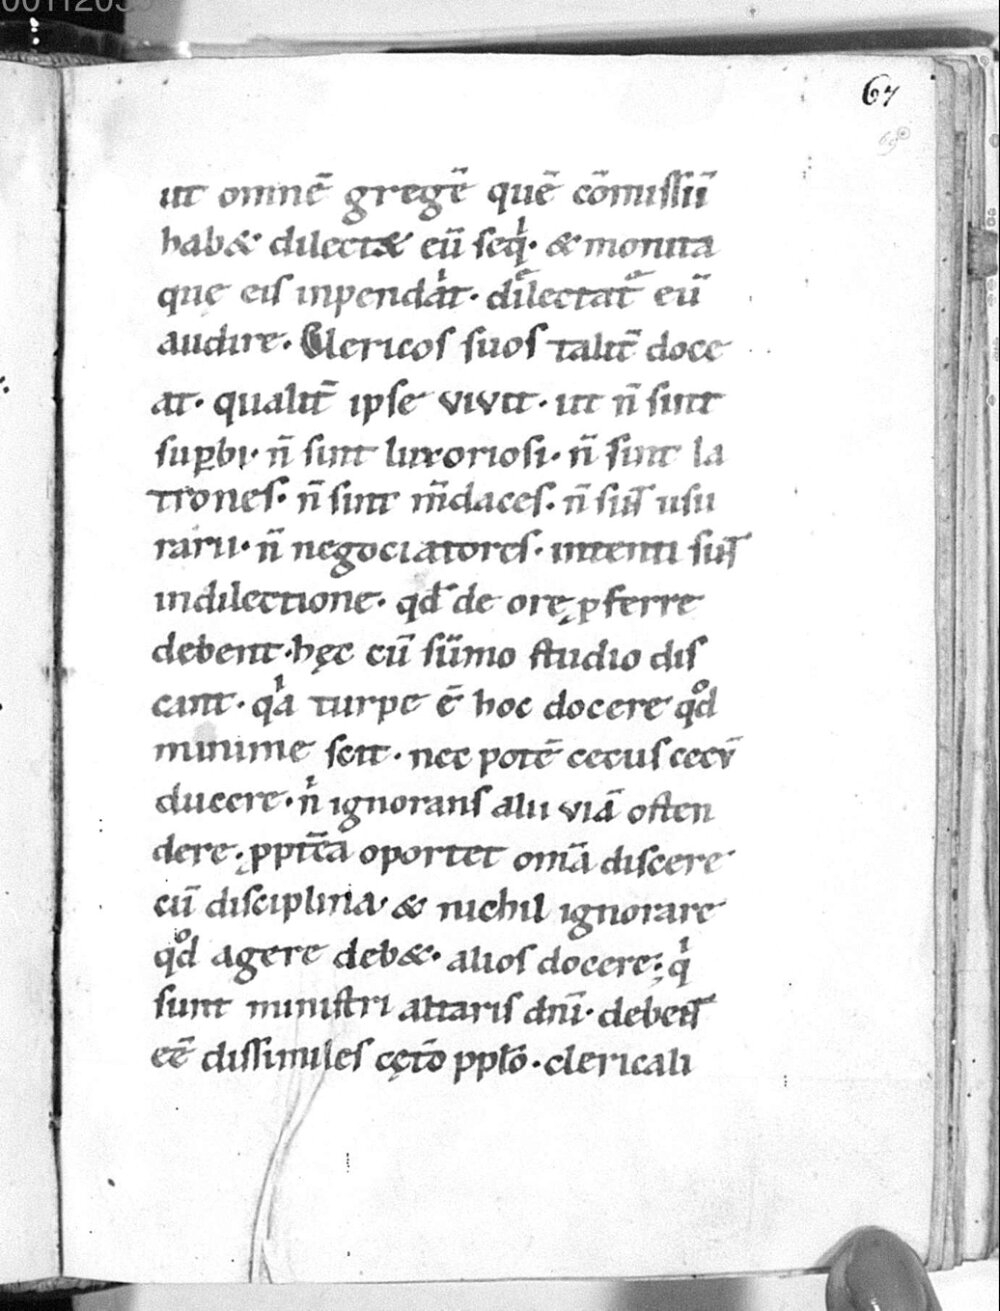 67
69
ut omnē gregē quē cōmissū
hab& dilect& eū seqͥ· & monita
quę eis inpendat· dilectat̄ eū
audire. Clericos suos talit̄ doce
at· qualit̄ ipse vivit· ut n̄ sint
suꝑbi· n̄ sint luxoriosi· n̄ sint la
trones· n̄ sint m̄daces· n̄ sint usu
rarii· n̄ negociatores· intenti sint
indilectione· qd̄ de orę ꝑferre
debent· hęc cū sūmo studio dis
cant· qͥa turpe ē hoc docere qͦd
minime scit· nec potē cecus cecū
ducere· nͥ ignorans alii viā osten
dere· ꝓpt̄ea oportet omā discere
cū disciplina· & nichil ignorare
qͦd agere deb&· alios docere; qͥ
sunt ministri altaris dn̄i· debent
eē dissimiles cęto ̄ pplo ̄· clericali